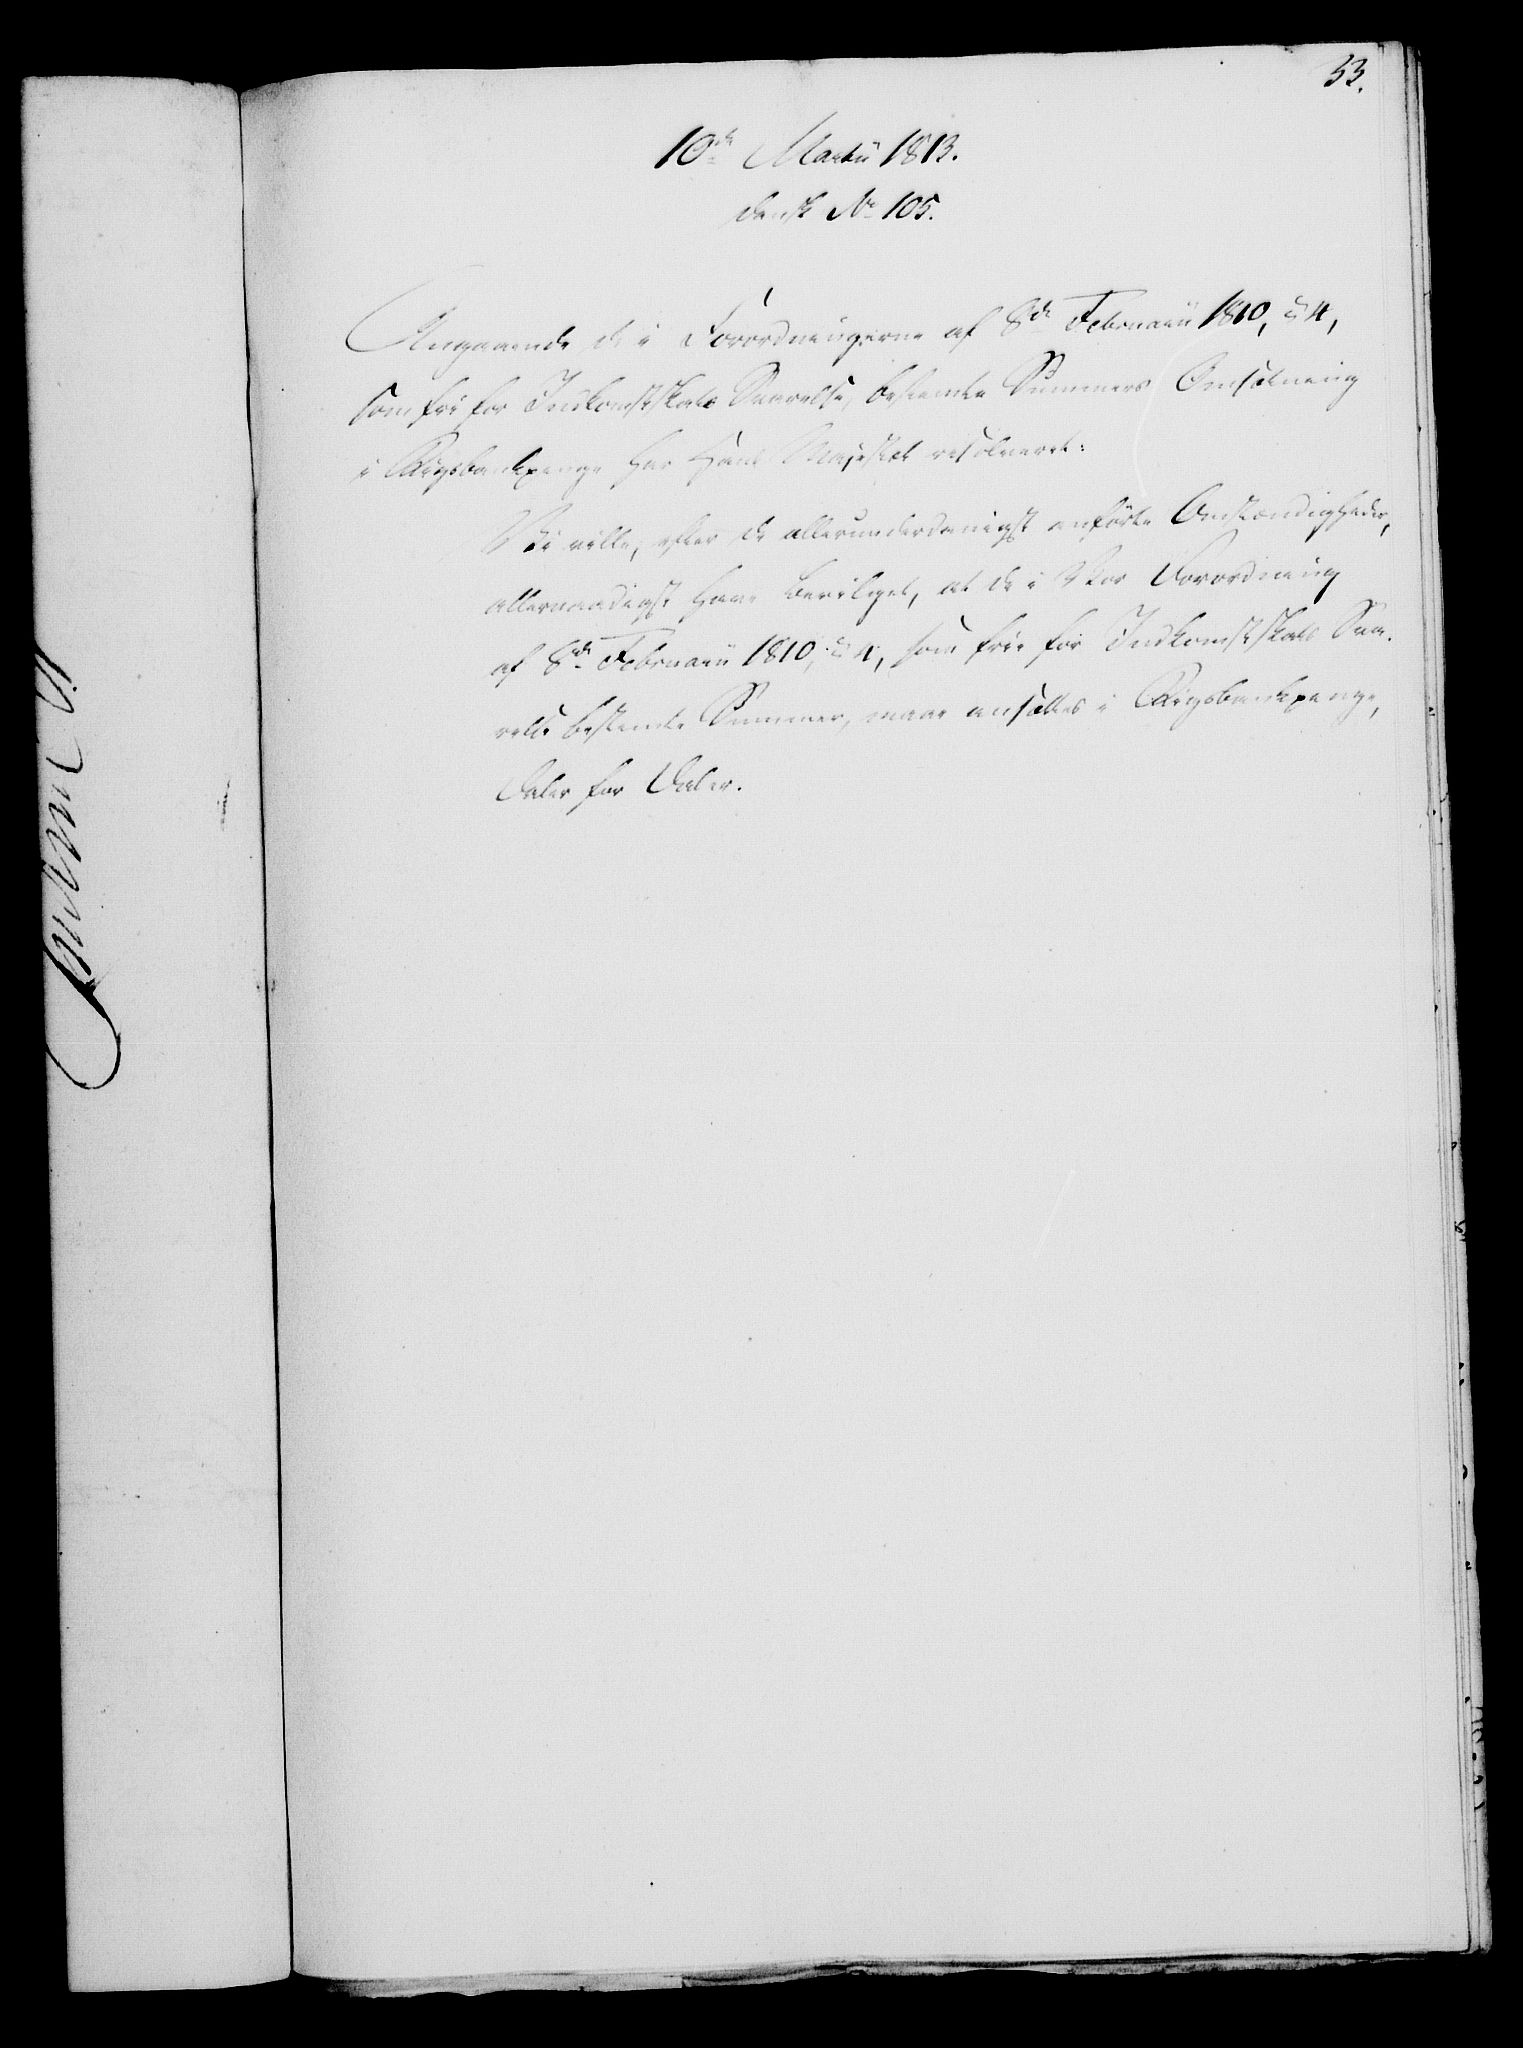 53.
10de Martii 1813.
dansk No 105.
Angaaende de i Forordningerne af 8de Februarii 1810, § 4,
som fri for Indkomstskats Svarelse, bestemte Summers Omsætning
i Rigsbankpenge har Hans Majestæt resolveret:
Vi ville, efter de allerunderdanigst anførte Omstændigheder,
allernaadigst have bevilget, at de i Vor Forordning
af 8de Februarii 1810, § 4, som frie for Indkomstskats Sva-
relse bestemte Summer, maae ansættes i Rigsbankpenge,
Daler for Daler.